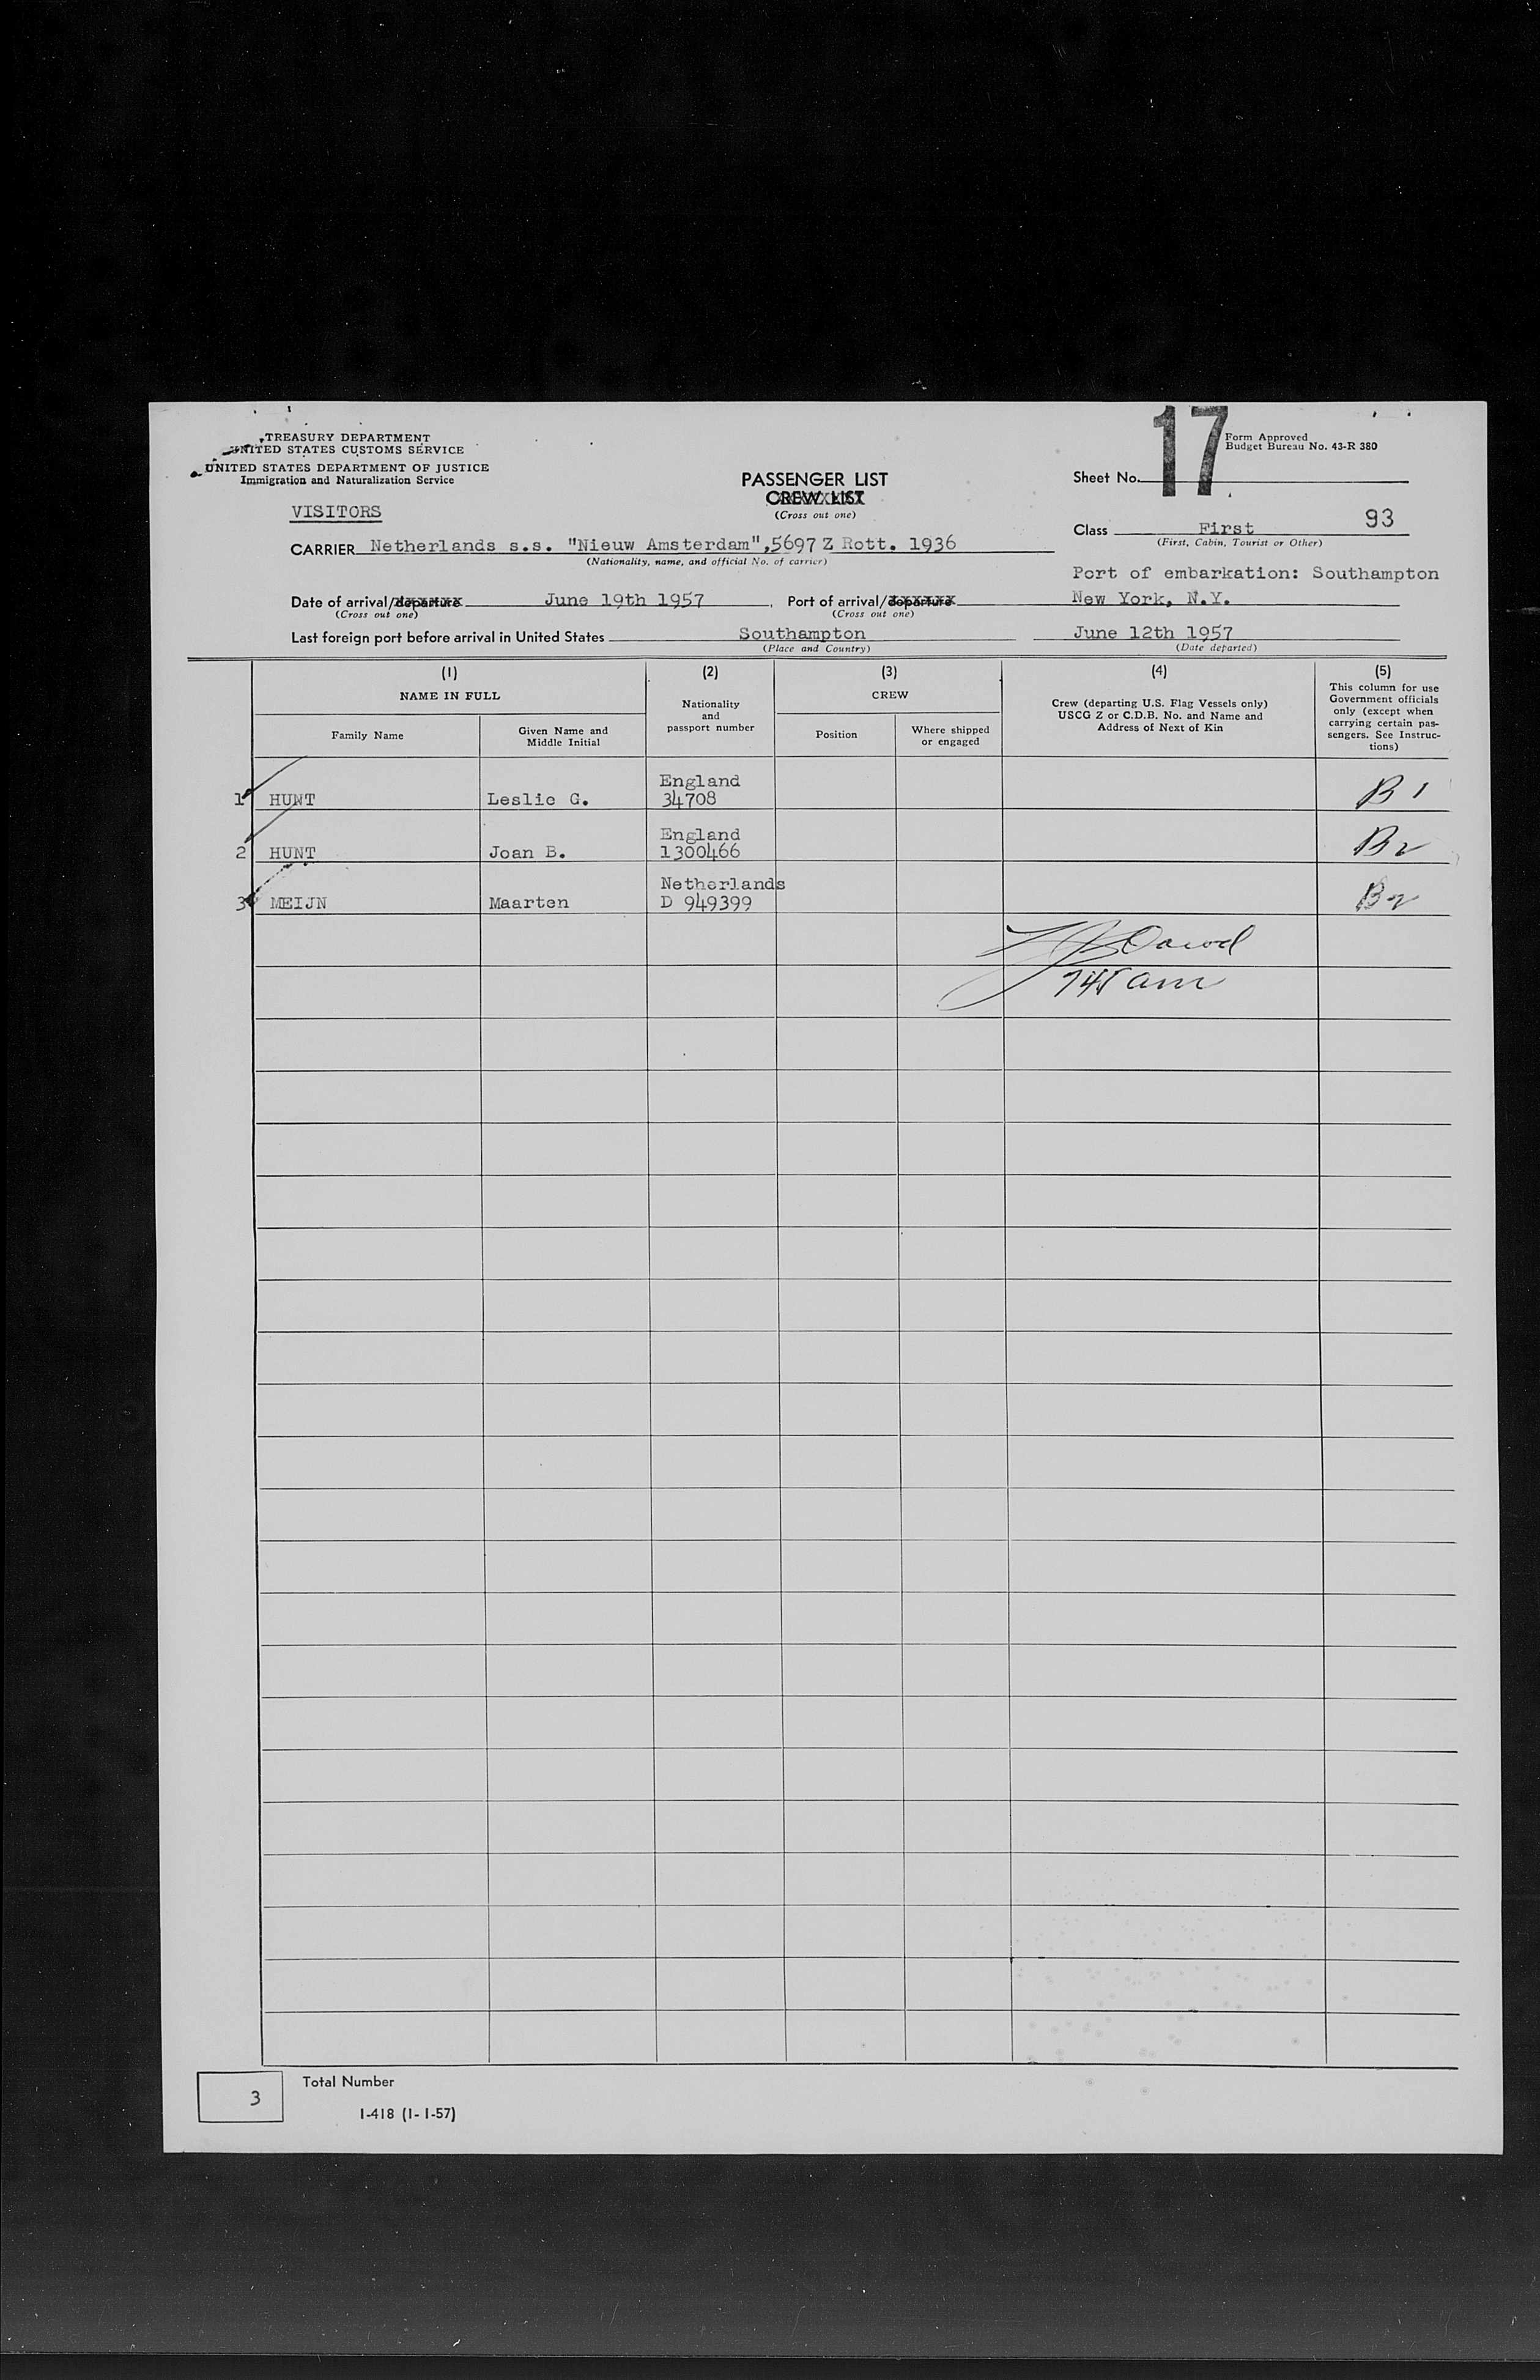 TREASURY DEPARTMENT
UNITED STATES CUSTOMS SERVICE
UNITED STATES DEPARTMENT OF JUSTICE
Immigration and Naturalization Service
VISITORS
PASSENGER LIST
CREW LIST
(Cross out one)
17
Form Approved
Budget Bureau No. 43-R 380
Sheet No.
Class First 93
(First, Cabin, Tourist or Other)
CARRIER Netherlands s.s. "Nieuw Amsterdam",5697 Z Rott. 1936
(Nationality, name, and official No. of carrier)
Port of embarkation: Southampton
Date of arrival/departure June 19th 1957, Port of arrival/departure New York, N.Y.
(Cross out one) (Cross out one)
Last foreign port before arrival in United States Southampton June 12th 1957
(Place and Country) (Date departed)
(1) (2) (3) (4) (5)
NAME IN FULL
Family Name
Given Name and
Middle Initial
Nationality
and
passport number
CREW
Position
Where shipped
or engaged
Crew (departing U.S. Flag Vessels only)
USCG Z or C.D.B. No. and Name and
Address of Next of Kin
This column for use
Government officials
only (except when
carrying certain pas-
sengers. See Instruc-
tions)
England
1 HUNT Leslie G. 34708 B 1
England
2 HUNT Joan B. 1300466 B2
Netherlands
3 MEIJN Maarten D 949399 B2
745 am
3 Total Number
I-418 (1-1-57)